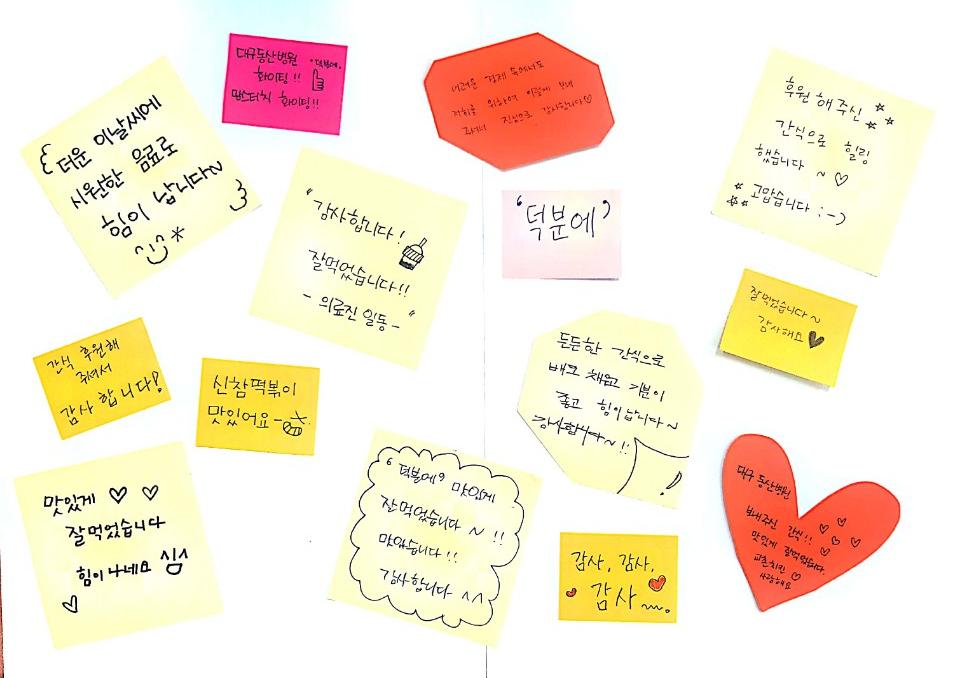 더운 이날씨에
시원한 음료로
힘이 납니다~
대구동산병원 "덕분에"
화이팅!!
맘스터치 화이팅!!
어려운 경제 속에서도
저희를 위하여 이렇게 보내
주셔서 진심으로 감사합니다♡
후원 해주신
간식으로 힐링
했습니다 ~ ♡
고맙습니다 :-)
"감사합니다!
잘먹었습니다!!
- 의료진 일동 -
'덕분에'
잘먹었습니다~
감사해요 ♥
간식 후원해
주셔서
감사 합니다!
신참떡볶이
맛있어요~
든든한 간식으로
배도 채우고 기분이
좋고 힘이 납니다~
감사합니다~!!
맛있게 ♡ ♡
잘먹었습니다
힘이 나네요
♡
"덕분에" 맛있게
잘먹었습니다 ~ !!
맛있습니다!!
감사합니다 ^^
감사, 감사,
감사 ~
대구 동산병원
보내주신 간식!!
맛있게 잘먹었습니다.
교촌치킨 ♡
사랑해요